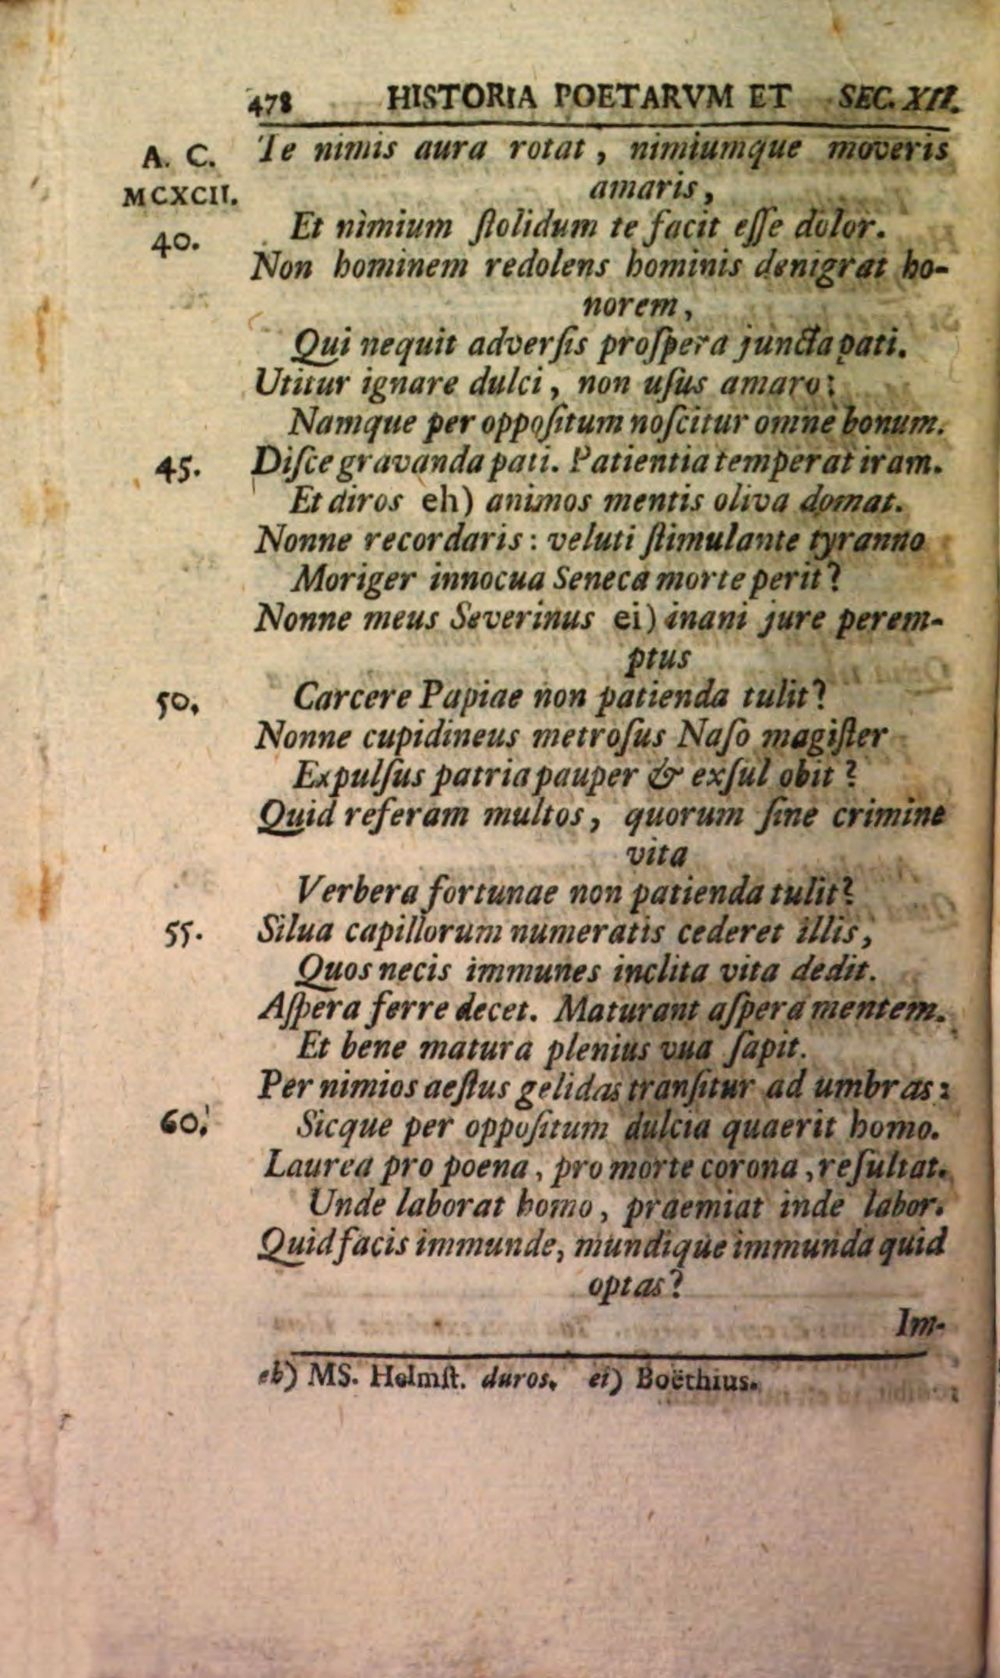 478 HISTORIA POETARVM ET SEC. XII.
A. C. Te nimis aura rotat, nimiumque moveris
MCXCII. amaris,
40. Et nimium ſtolidum te facit eſſe dolor.
Non hominem redolens hominis denigrat ho-
norem,
Qui nequit adverſis proſpera juncta pati.
Utitur ignare dulci, non uſus amaro:
Namque per oppoſitum noſcitur omne bonum.
45. Diſce gravanda pati. Patientia temperat iram.
Et diros eh) animos mentis oliva domat.
Nonne recordaris: veluti ſtimulante tyranno
Moriger innocua Seneca morte perit?
Nonne meus Severinus ei) inani jure perem-
ptus
50. Carcere Papiae non patienda tulit?
Nonne cupidineus metroſus Naſo magiſter
Expulſus patria pauper & exſul obit?
Quid referam multos, quorum ſine crimine
vita
Verbera fortunae non patienda tulit?
55. Silua capillorum numeratis cederet illis,
Quos necis immunes inclita vita dedit.
Aſpera ferre decet. Maturant aſpera mentem.
Et bene matura plenius vua ſapit.
Per nimios aeſtus gelidas tranſitur ad umbras:
60. Sicque per oppoſitum dulcia quaerit homo.
Laurea pro poena, pro morte corona, reſultat.
Unde laborat homo, praemiat inde labor.
Quid facis immunde, mundique immunda quid
optas?
Im-
eh) MS. Helmſt. duros. ei) Boëthius.